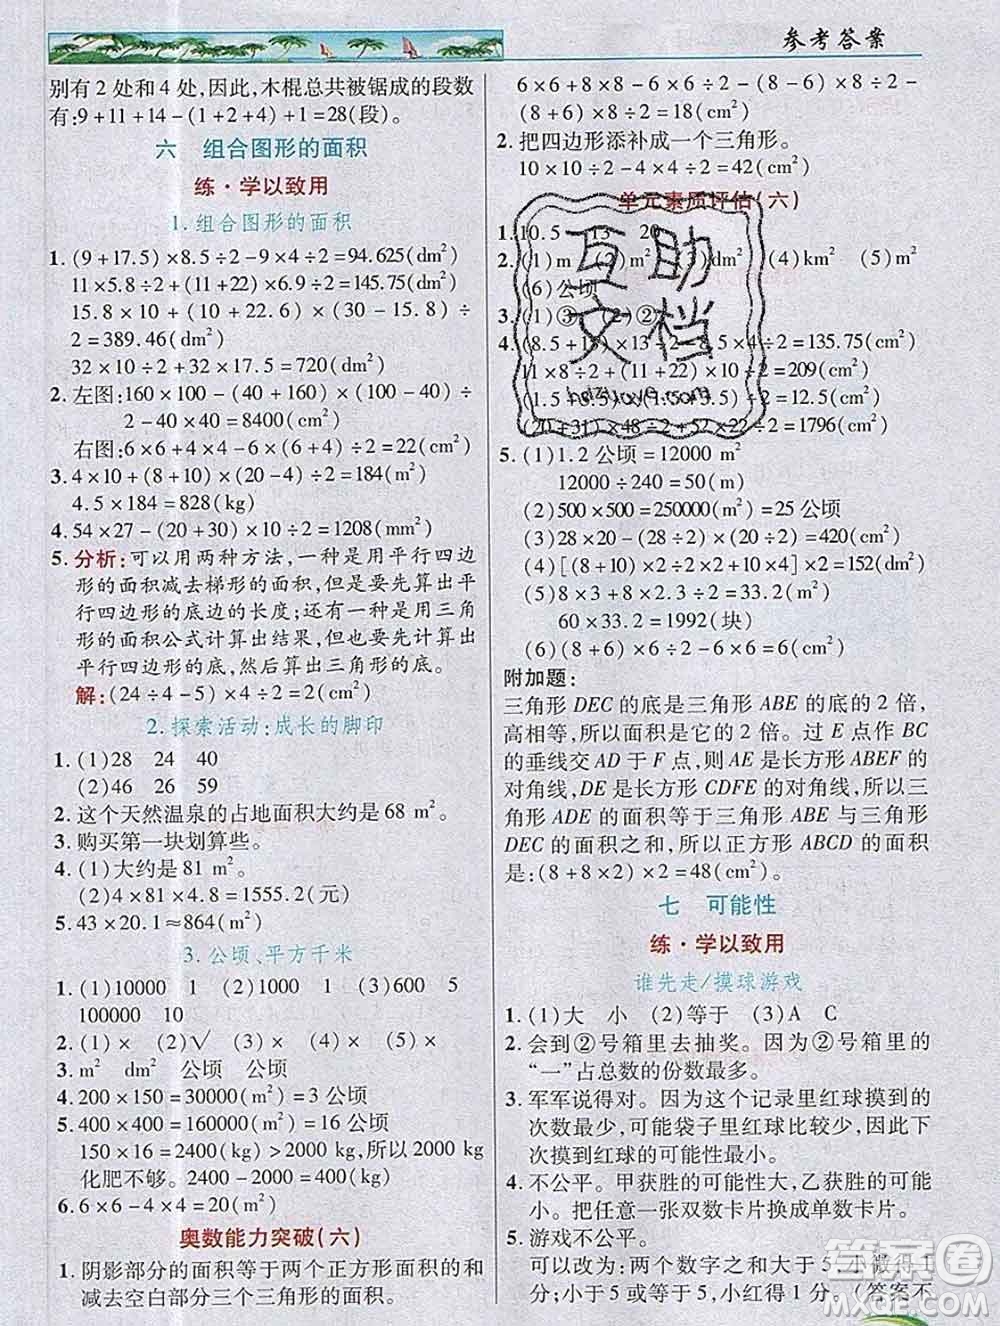 参考答案
别有 2 处和 4 处,因此,木棍总共被锯成的段数
有:9+11+14-(1+2+4)+1=28(段)。
六 组合图形的面积
练·学以致用
1.组合图形的面积
1. (9+17.5)×8.5÷2-9×4÷2=94.625(dm²)
11×5.8÷2+(11+22)×6.9÷2=145.75(dm²)
15.8×10+(20+30)×(30-15.8)÷
2=389.46(dm²)
32×10÷2+32×35÷2=720(dm²)
2. 左图:160×100-(160-40)×(100-40)÷
2-100×40÷2=8400(cm²)
右图:6×6+4×4-6×(6+4)÷2=22(cm²)
3. 4×10+(8+10)×(20-4)÷2=184(m²)
4.5×184=828(kg)
4. 54×27-(20+30)×10÷2=1208(mm²)
5. 分析:可以用两种方法,一种是用平行四边
形的面积减去梯形的面积,但是要先算出平
行四边形的底边的长度;还有一种是用三角
形的面积公式计算出结果,同样要先计算出
平行四边形的底,然后算出三角形的底。
解:(24÷4-5)×4÷2=2(cm²)
2. 探索活动:成长的脚印
1. (1)28 24 40
(2)46 26 59
2. 这个天然温泉的占地面积大约是 68 m²。
3. 购买第一块划算些。
4. (1)大约是 81 m²。
(2)4×81×4.8=1555.2(元)
5. 43×20.1≈864(m²)
3. 公顷、平方千米
1. (1)10000 1 (2)1000 (3)600 5
100000 10 (4)100
2. (1)× (2)√ (3)× (4)×
3. m² dm² 公顷 公顷
4. 200×150=30000(m²)=3 公顷
5. 400×400=160000(m²)=16 公顷
150×16=2400(kg),所以 2000 kg
化肥不够。2400-2000=400(kg)
6. 6×6-4×4=20(m²)
奥数能力突破(六)
1. 阴影部分的面积等于两个正方形面积的和
减去空白部分三个三角形的面积。
6×6+8×8-6×6÷2-8×(8-6)÷2-
(8+6)×8÷2=18(cm²)
2. 把四边形添补成一个三角形。
10×10÷2-4×4÷2=42(cm²)
单元素质评估(六)
1. 10.5 13 20
2. (1)m dm² (4)km² (5)m²
(6)公顷
3. (1)③ (2)②
4. (8.5+ )×13÷2-8.5×4÷2=135.75(cm²)
11×8÷2+(11+22)×10÷2=209(cm²)
÷2=12.5(cm²)
(20+31)×48÷2+52×22÷2=1796(cm²)
5. (1)1.2 公顷=12000 m²
12000÷240=50(m)
(2)500×500=250000(m²)=25 公顷
(3)28×20-(28÷2)×(20÷2)=420(m²)
(4)[(8+10)×2÷2+10×4]×2=152(dm²)
(5)8×3+8×2.3÷2=33.2(m²)
60×33.2=1992(块)
(6)(8+6)×6÷2-6×6÷2=24(cm²)
附加题:
三角形 DEC 的底是三角形 ABE 的底的 2 倍,
高相等,所以面积是它的 2 倍。过 E 点作 BC
的垂线交 AD 于 F 点,则 AE 是长方形 ABEF 的
对角线,DE 是长方形 CDFE 的对角线,所以三
角形 ADE 的面积等于三角形 ABE 与三角形
DEC 的面积之和,所以正方形 ABCD 的面积
是:(8+8×2)×2=48(cm²)
七 可能性
练·学以致用
谁先走/摸球游戏
1. (1)大 小 (2)等于 (3)A C
2. 会到②号箱里去抽奖。因为②号箱里的
“一”占总数的份数最多。
3. 军军说得对。因为这个记录里红球摸到的
次数最少,可能袋子里红球比较少,因此下
次摸到红球的可能性最小。
4. 不公平。甲获胜的可能性大,乙获胜的可能
性小。把任意一张双数卡片换成单数卡片。
5. 游戏不公平。
可以改为:两个数字之和大于 5,小微得 1
分;小于 5 或等于 5,小红得 1 分。(答案不
互助
文档
答案圈
MXQE.COM